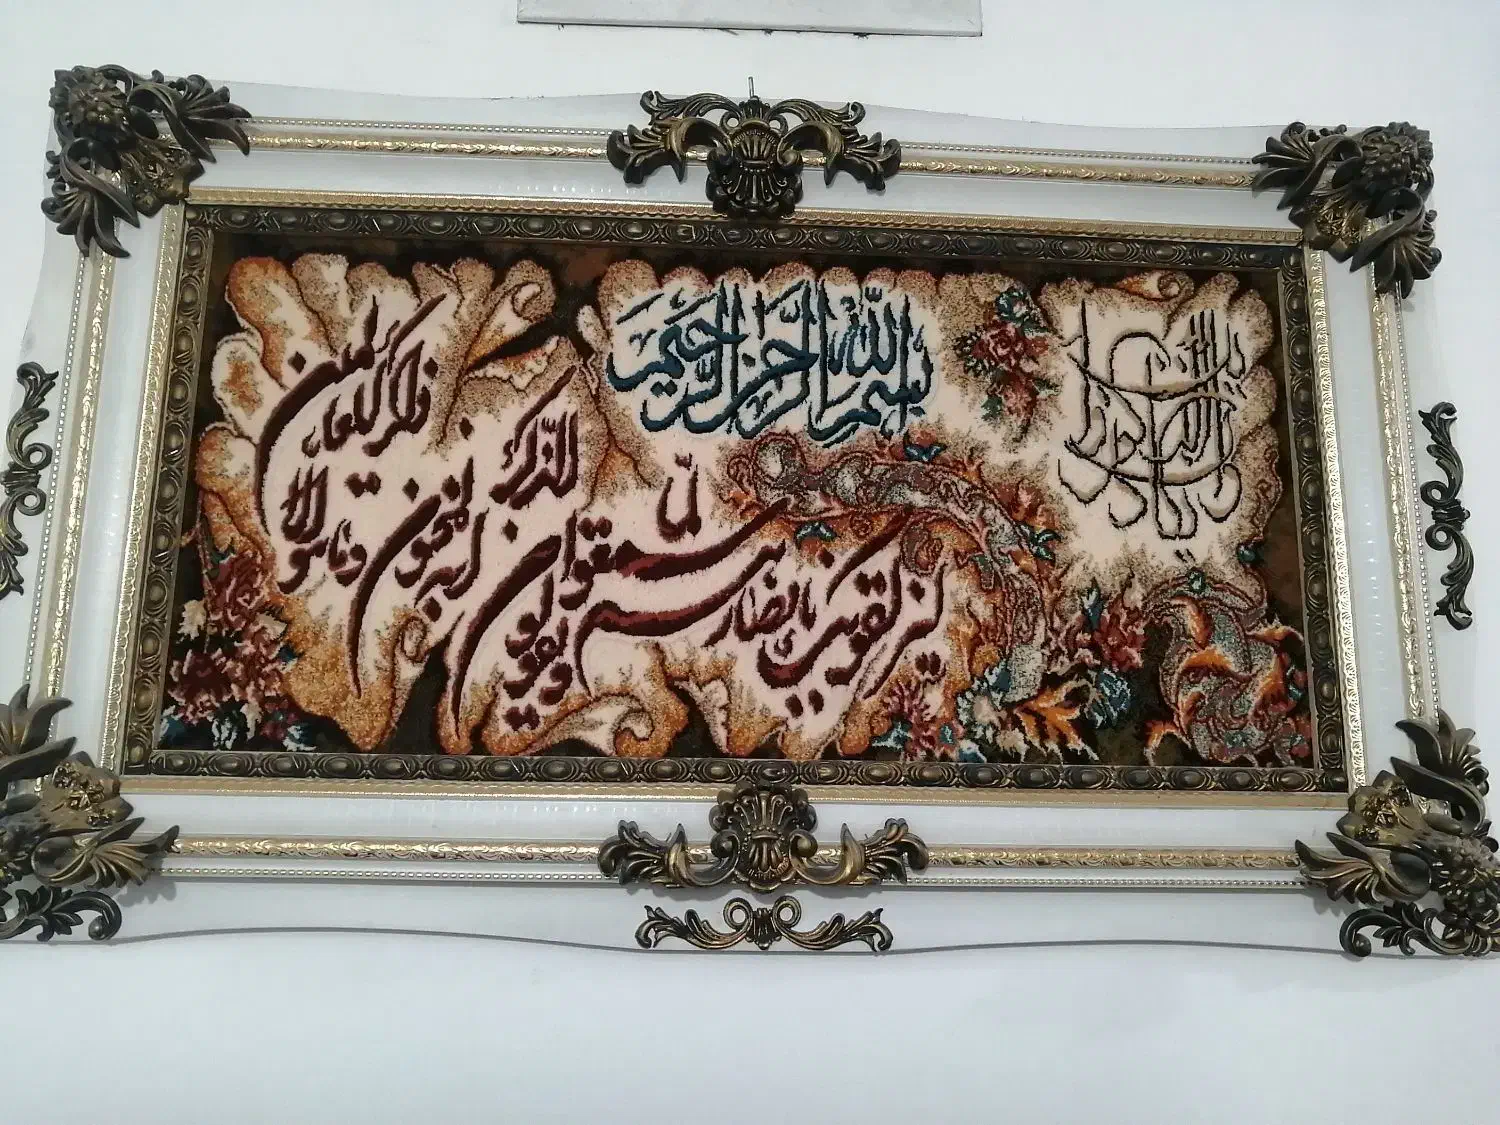 بسم الله الرحمن الرحیم
و ان یکاد الذین کفروا
لیزلقونک بابصارهم لما سمعوا الذکر
و یقولون انه لمجنون
و ما هو الا ذکر للعالمین